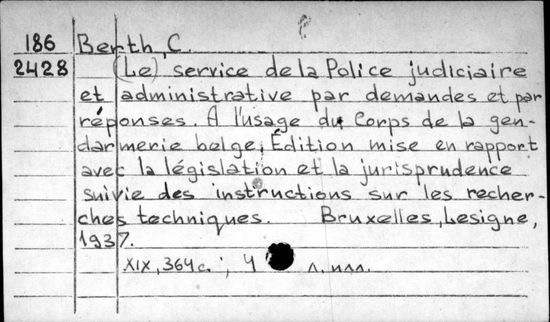 186 Berth, C.
2428 (Le) service de la Police judiciaire
et administrative par demandes et par
réponses. A l'usage du Corps de la gen-
darmerie belge, Édition mise en rapport
avec la législation et la jurisprudence
suivie des instructions sur les recher-
ches techniques. Bruxelles, Lesigne,
1937.
XIX, 364 c. ; 4 л. илл.